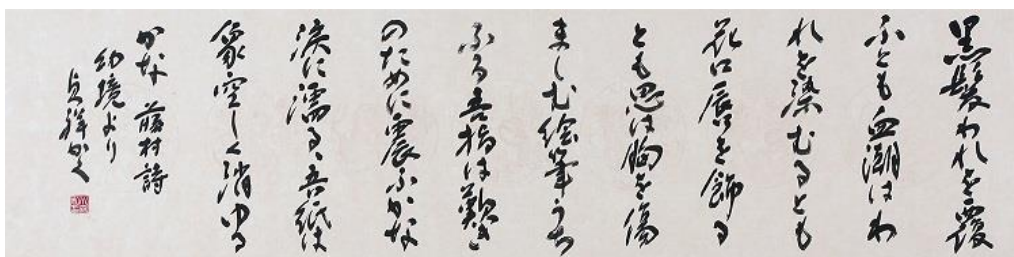 黒髪われを覆
ふとも血潮はわ
れを染むるとも
花口唇を飾る
とも思は胸を傷
ましむ絵筆うち
ふる吾指は歎き
のために震ふかな
涙に濡るゝ吾紙は
象空しく消ゆる
かな 藤村詩
幻境より